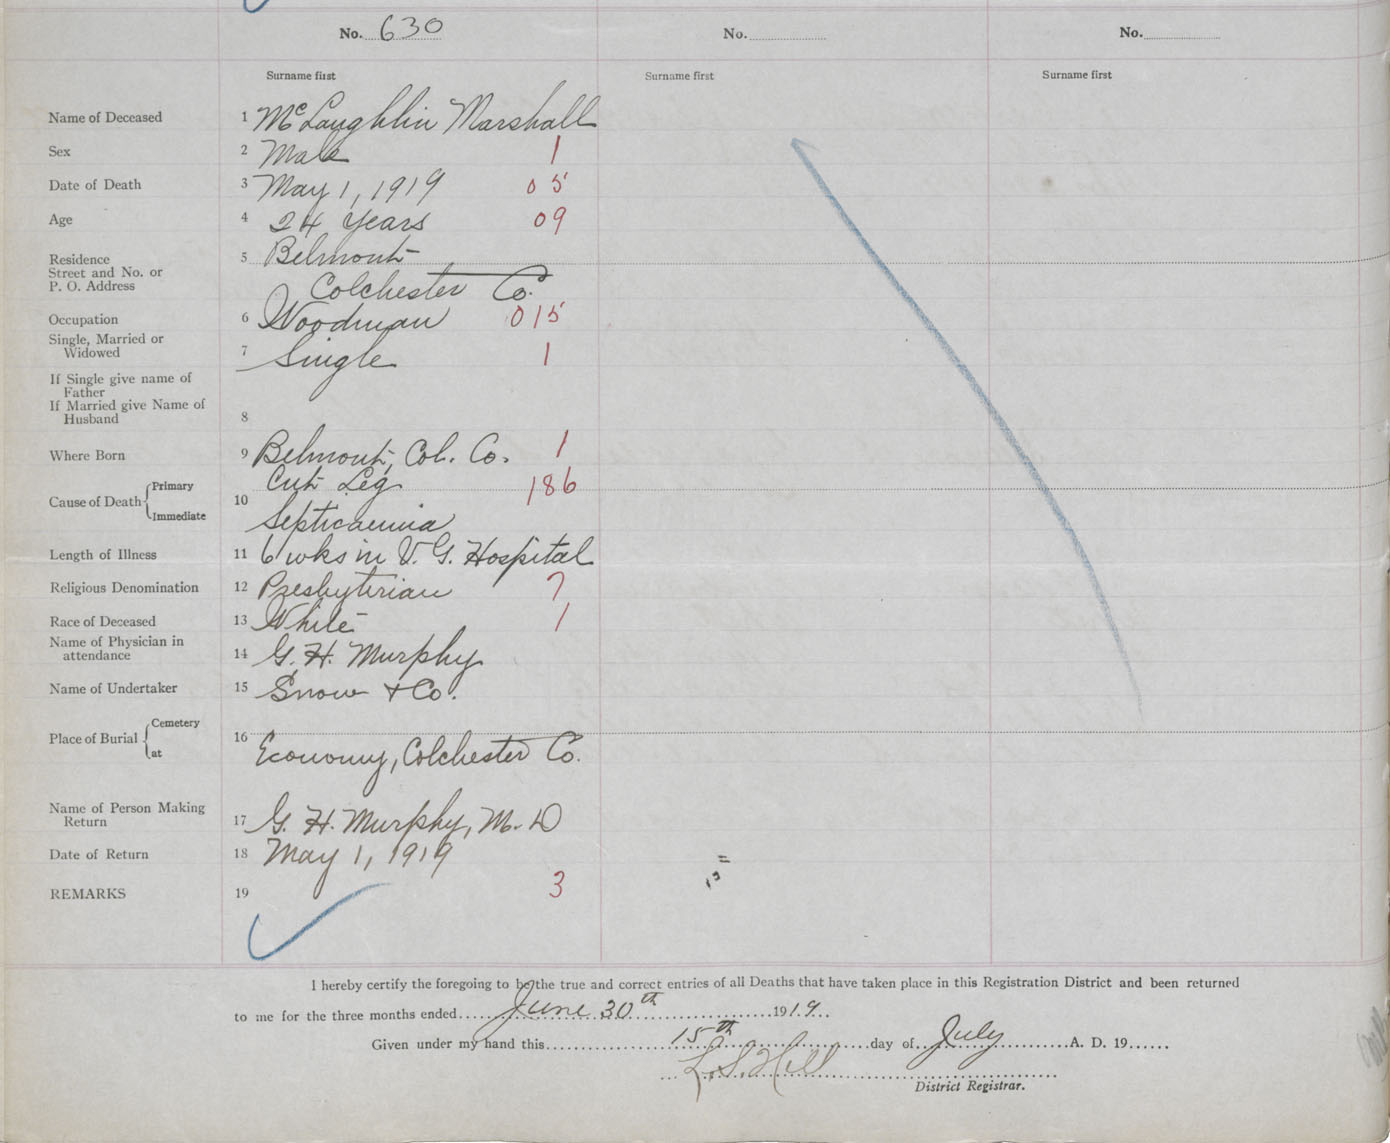 No. 630
No.
No.
Surname first
Surname first
Surname first
Name of Deceased 1 McLaughlin Marshall
Sex 2 Male 1
Date of Death 3 May 1, 1919 05
Age 4 24 Years 09
Residence 5 Belmont
Street and No. or
P. O. Address Colchester Co.
Occupation 6 Woodman 015
Single, Married or
Widowed 7 Single 1
If Single give name of
Father
If Married give Name of
Husband 8
Where Born 9 Belmont, Col. Co. 1
Cause of Death Primary Cut Leg 186
10
Immediate Septicaemia
Length of Illness 11 6 wks in V. G. Hospital
Religious Denomination 12 Presbyterian 7
Race of Deceased 13 White 1
Name of Physician in
attendance 14 G. H. Murphy
Name of Undertaker 15 Snow + Co.
Place of Burial Cemetery
at 16 Economy, Colchester Co.
Name of Person Making
Return 17 G. H. Murphy, M. D
Date of Return 18 May 1, 1919
REMARKS 19 3
I hereby certify the foregoing to be the true and correct entries of all Deaths that have taken place in this Registration District and been returned
to me for the three months ended June 30th 1919.
Given under my hand this 15th day of July A. D. 19
L. S. Hill
District Registrar.